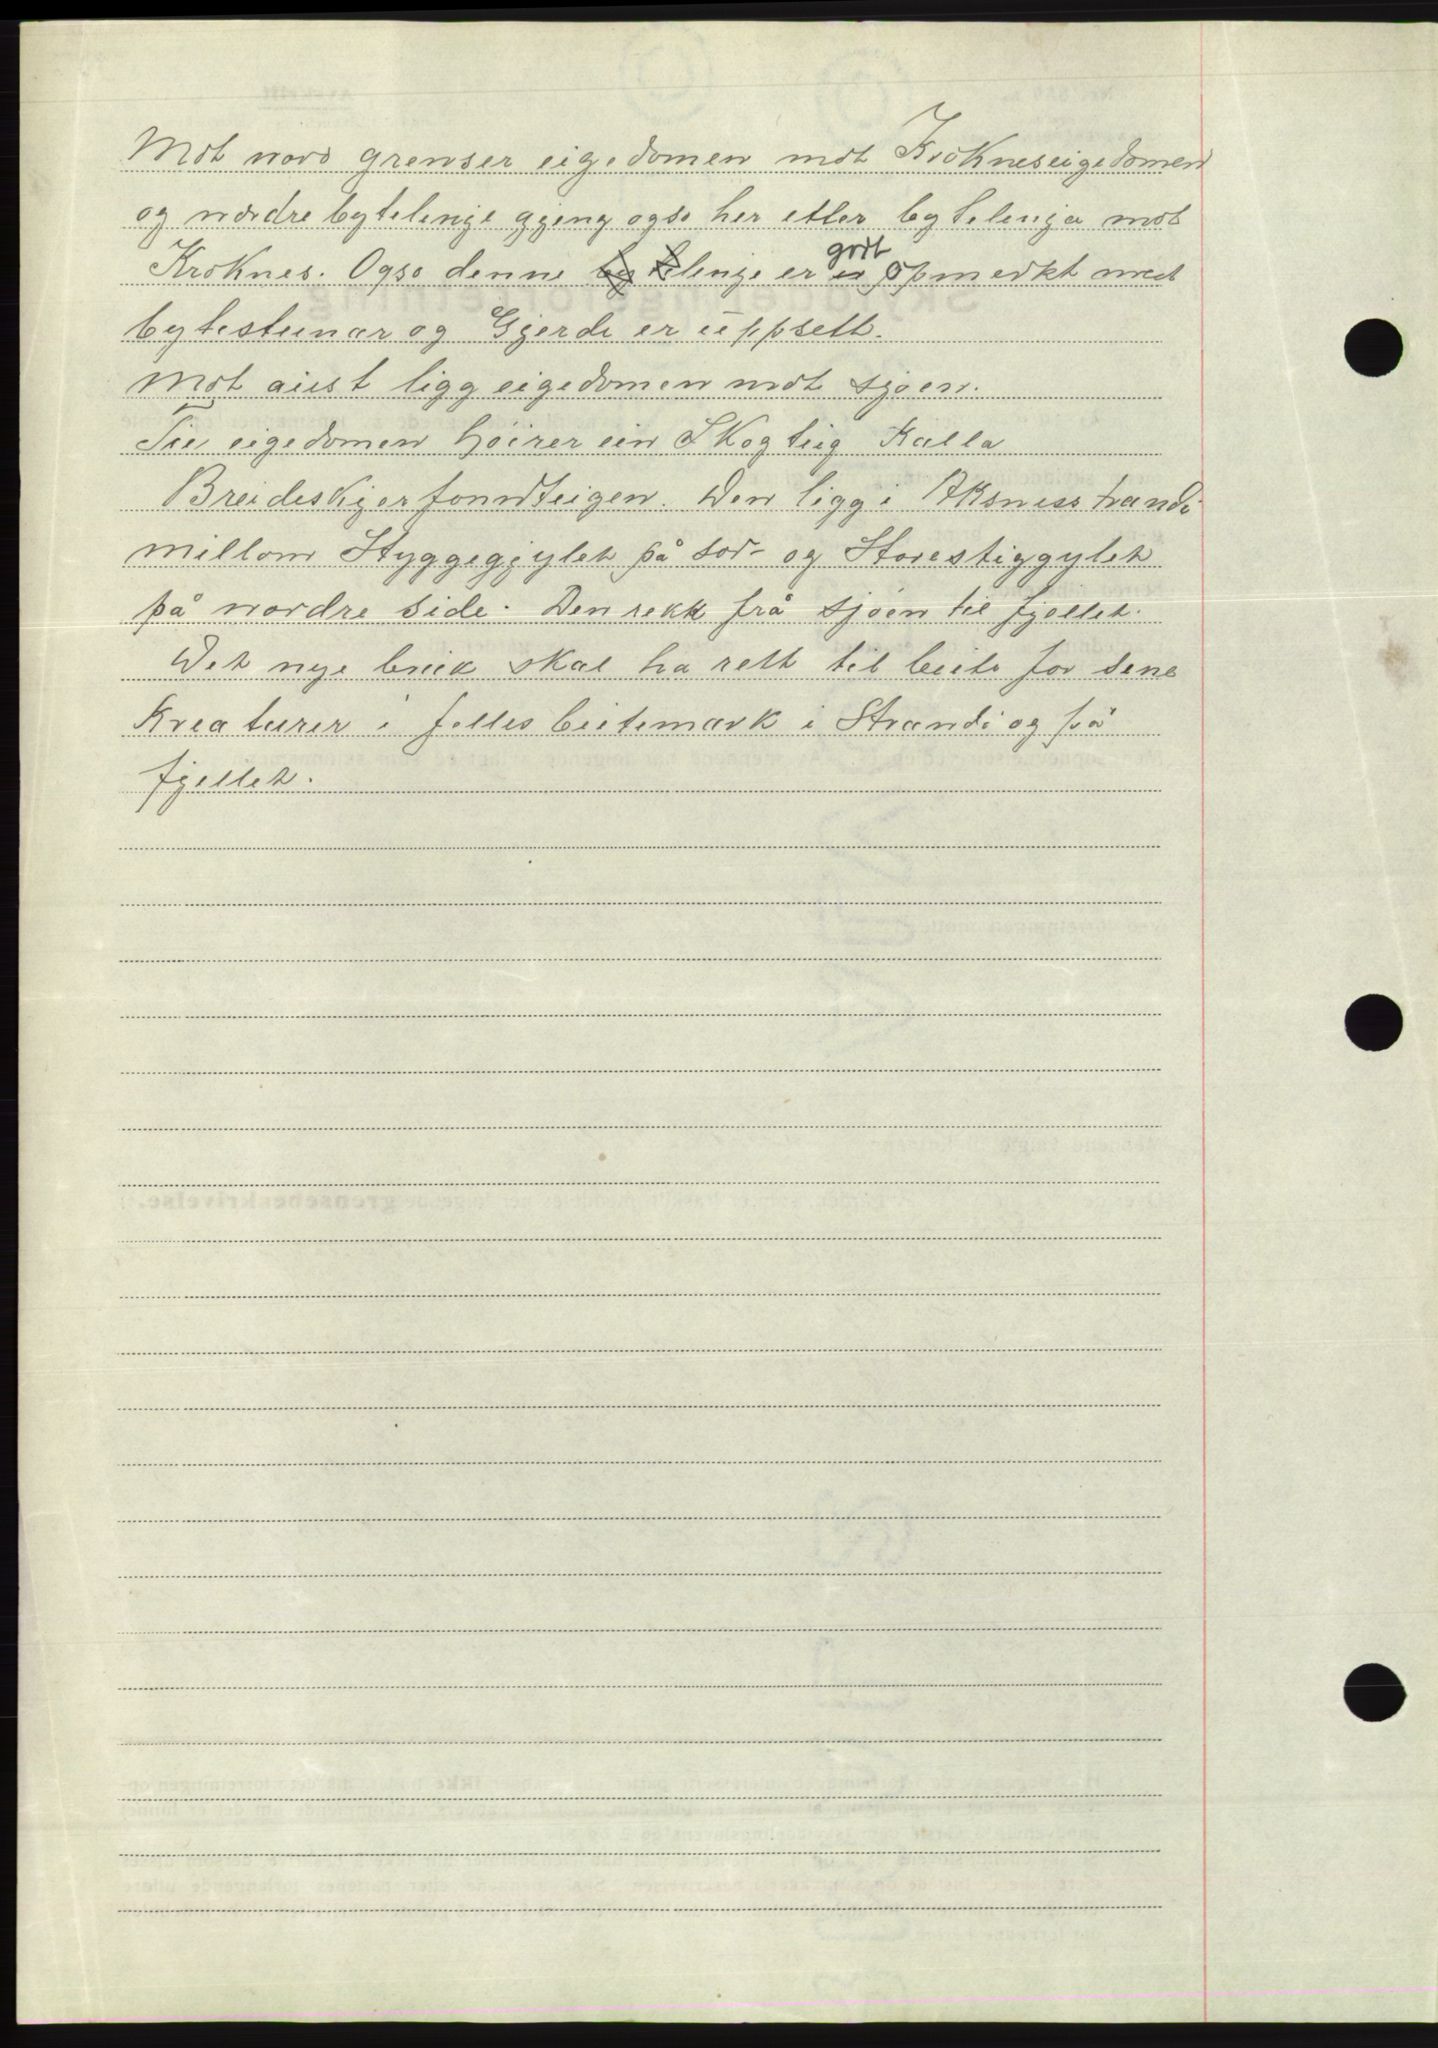 Mot nord grenser eigedomen mot Krokneseigedomen
og nørdre bytelinje gjeng ogso her etter bytelinja mot
Kroknes. Ogso denne linje er godt opmerkt med
bytesteinar og Gjerde er uppsett.
Mot aust ligg eigedomen mot sjøen.
Til eigedomen høirer ein Skogteig kalla
Breideskjerfonnteigen. Den ligg i Aksnesstrandi
millom Styggegjylet på sør- og Storestiggylet
på nordre side. Den rekk frå sjøen til fjellet.
Det nye bruk skal ha rett til beite for sine
Kreaturer i felles beitemark i Strandi og på
fjellet.